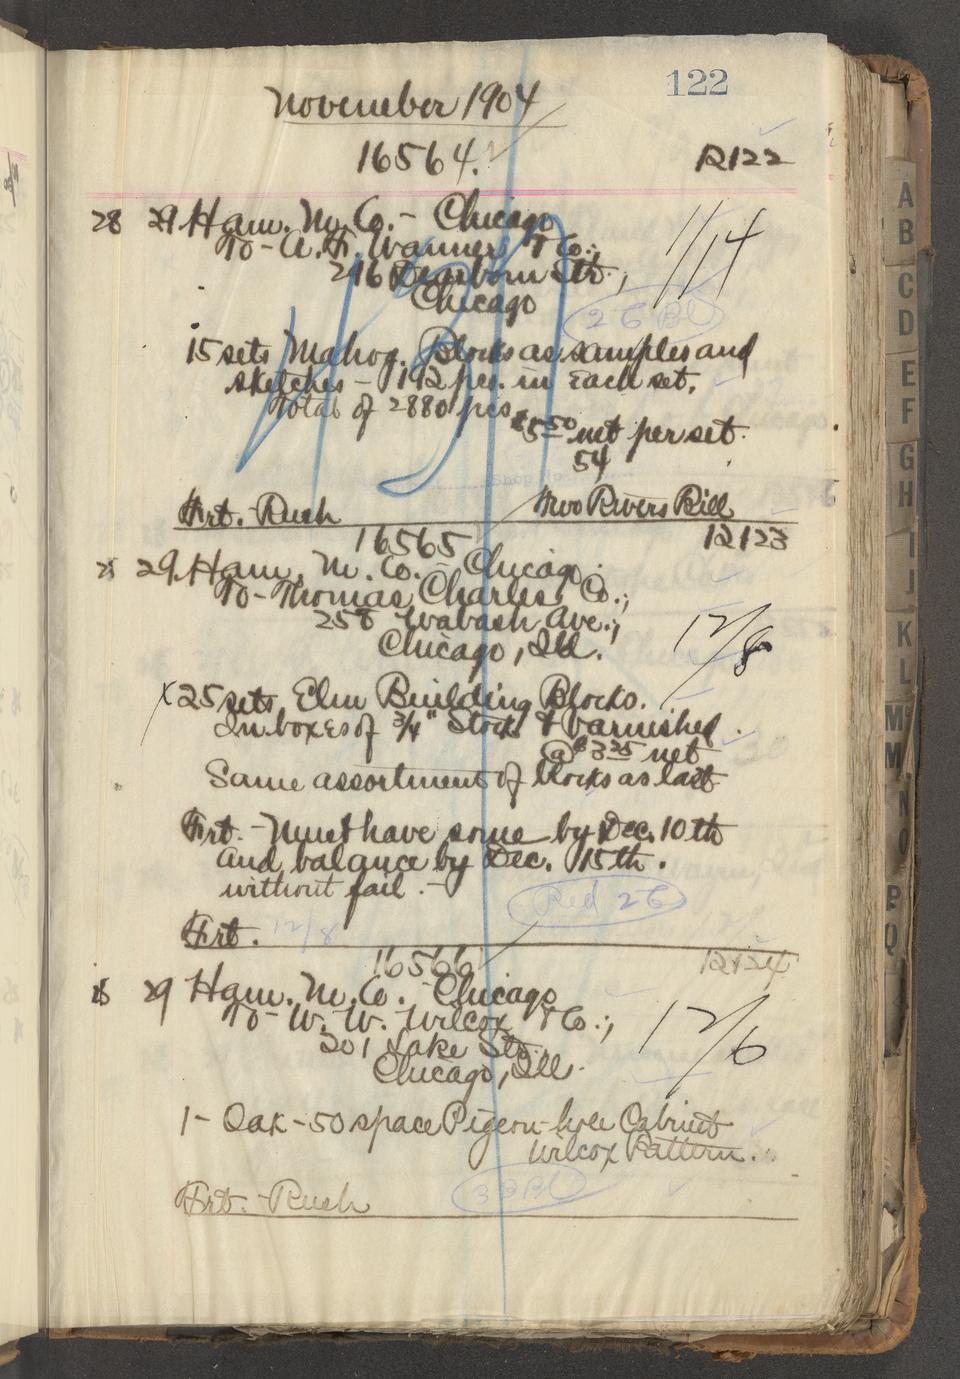 122
November 1904
16564.
12122
28 29 Ham. M. Co. - Chicago
To - A. F. Wanner & Co.;
216 Dearborn Str.;
Chicago
11/14
26 BL
15 sets Mahog. Blocks as samples and
sketches - 192 pcs. in each set.
Total of 2880 pcs.
$5.50 net per set.
54
Frt. - Rush
Two Rivers Bill
16565
12123
29 Ham. M. Co. - Chicago.
To - Thomas Charles Co.;
258 Wabash Ave.;
Chicago, Ill.
12/8
x 25 sets Elm Building Blocks.
In boxes of 3/4" Stock & varnished.
@ $3.25 net
Same assortment of blocks as last
Frt. - Must have some by Dec. 10th
and balance by Dec. 15th.
without fail. -
Red 26
Frt. 12/8
16566
12124
29 Ham. M. Co. - Chicago
To - W. W. Wilcox & Co.;
201 Lake Str.
Chicago, Ill.
12/6
1 - Oak - 50 space Pigeon-hole Cabinet
Wilcox Pattern.
Frt. - Rush
A
B
C
D
E
F
G
H
I
J
K
L
M
M
N
O
P
Q